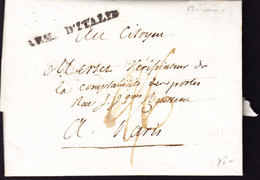 ARM. D'ITALIE
Au Citoyen
Mersel Vérificateur de
la comptabilité des postes
Rue J. J. Rousseau
A Paris